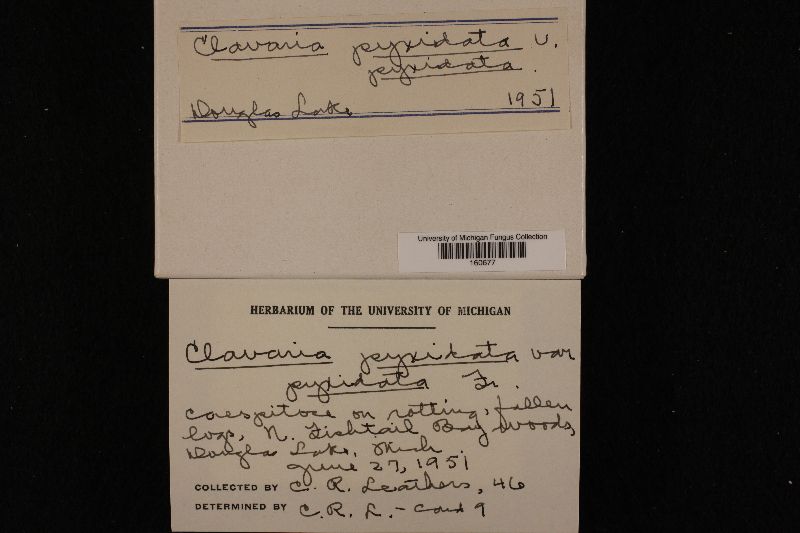 Clavaria pyxidata v.
pyxidata.
Douglas Lake 1951
University of Michigan Fungus Collection
160677
HERBARIUM OF THE UNIVERSITY OF MICHIGAN
Clavaria pyxidata var
pyxidata Fr.
caespitose on rotting, fallen
logs, N. Fishtail Bay Woods,
Douglas Lake, Mich.
June 27, 1951
COLLECTED BY C. R. Leathers, 46
DETERMINED BY C. R. L. -